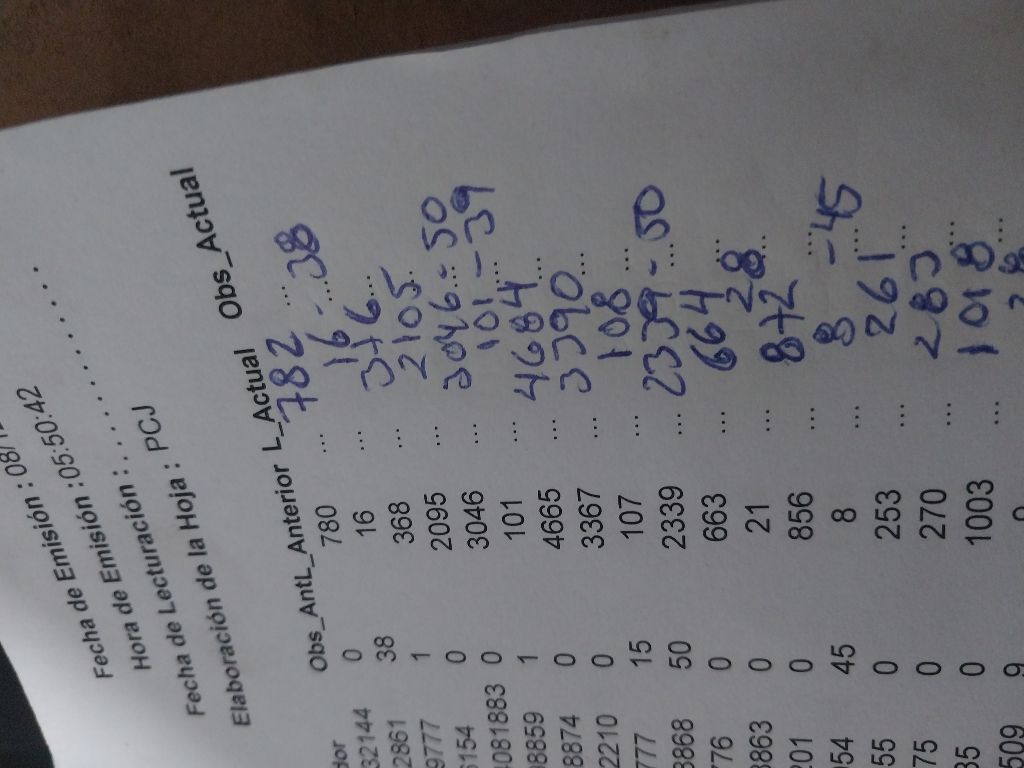 Fecha de Emisión : 08/1
Hora de Emisión : 05:50:42
Fecha de Lecturación : . . . . . . . . . .
Elaboración de la Hoja : PCJ
dor Obs_AntL_Anterior L_Actual Obs_Actual
32144 0 780 ... 782 ...
2861 38 16 ... 16 - 38
9777 1 368 ... 376 ...
6154 0 2095 ... 2105 ...
4081883 0 3046 ... 3046 - 50
8859 1 101 ... 101 - 39
8874 0 4665 ... 4684 ...
2210 0 3367 ... 3390 ...
777 15 107 ... 108 ...
3868 50 2339 ... 2339 - 50
776 0 663 ... 664 ...
3863 0 21 ... 28 ...
201 0 856 ... 872 ...
954 45 8 ... 8 - 45
55 0 253 ... 261 ...
75 0 270 ... 283 ...
35 0 1003 ... 1018 ...
509 9